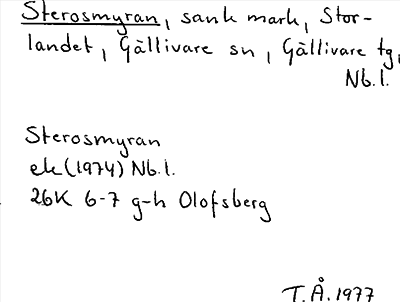 Sterosmyran, sank mark, Stor-
landet, Gällivare sn, Gällivare tg,
Nb.l.
Sterosmyran
ek (1974) Nb.l.
26K 6-7 g-h Olofsberg
T.Å. 1977